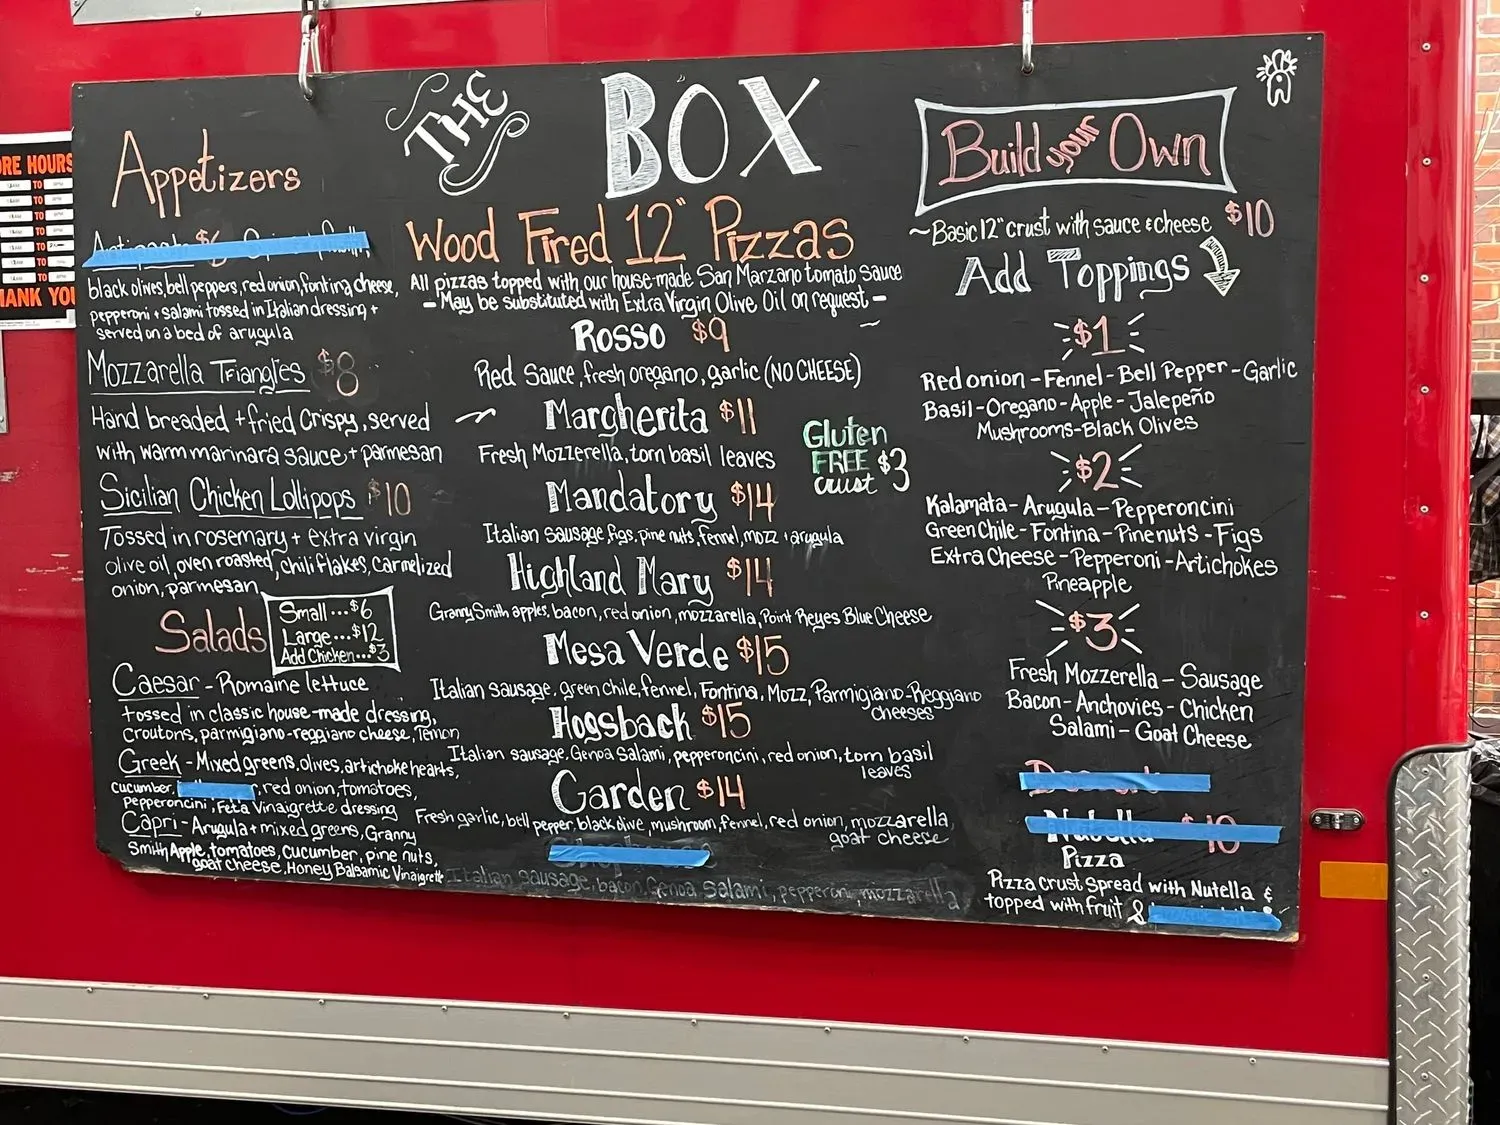 THE BOX
Appetizers
black olives, bell peppers, red onion, fontina cheese,
pepperoni + salami tossed in Italian dressing +
served on a bed of arugula
Mozzarella Triangles $8
Hand breaded + fried crispy, served
with warm marinara sauce + parmesan
Sicilian Chicken Lollipops $10
Tossed in rosemary + extra virgin
olive oil, oven roasted, chili flakes, carmelized
onion, parmesan
Salads
Small...$6
Large...$12
Add Chicken...$3
Caesar - Romaine lettuce
tossed in classic house-made dressing,
croutons, parmigiano-reggiano cheese, lemon
Greek - Mixed greens, olives, artichoke hearts,
cucumber, red onion, tomatoes,
Pepperoncini, Feta Vinaigrette dressing
Capri - Arugula + mixed greens, Granny
Smith Apple, tomatoes, cucumber, pine nuts,
goat cheese, Honey Balsamic Vinaigrette
Wood Fired 12" Pizzas
All pizzas topped with our house-made San Marzano tomato sauce
- May be substituted with Extra Virgin Olive Oil on request -
Rosso $9
Red Sauce, fresh oregano, garlic (NO CHEESE)
Margherita $11
Fresh Mozzerella, torn basil leaves
Gluten
FREE $3
crust
Mandatory $14
Italian sausage, figs, pine nuts, fennel, mozz + arugula
Highland Mary $14
Granny Smith apples, bacon, red onion, mozzarella, Point Reyes Blue Cheese
Mesa Verde $15
Italian sausage, green chile, fennel, Fontina, Mozz, Parmigiano-Reggiano
cheeses
Hogsback $15
Italian sausage, Genoa Salami, pepperoncini, red onion, torn basil
leaves
Garden $14
Fresh garlic, bell pepper, black olive, mushroom, fennel, red onion, mozzarella,
goat cheese
Italian sausage, bacon, Genoa Salami, pepperoni, mozzarella
Build your Own
~Basic 12" crust with sauce & cheese $10
Add Toppings
$1
Red onion - Fennel - Bell Pepper - Garlic
Basil - Oregano - Apple - Jalepeño
Mushrooms - Black Olives
$2
Kalamata - Arugula - Pepperoncini
Green Chile - Fontina - Pinenuts - Figs
Extra Cheese - Pepperoni - Artichokes
Pineapple
$3
Fresh Mozzerella - Sausage
Bacon - Anchovies - Chicken
Salami - Goat Cheese
Nutella $10
Pizza
Pizza crust spread with Nutella &
topped with fruit &